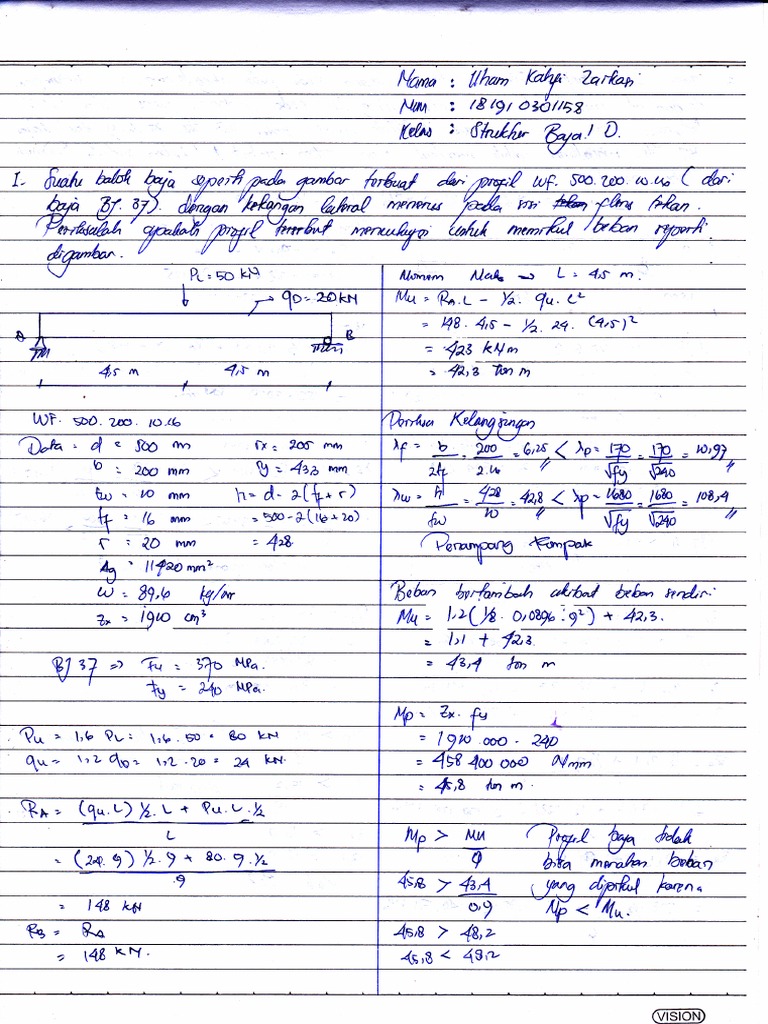 Nama : Ilham Kahfi Zarkasi
NIM : 181910301158
Kelas : Struktur Baja 1 D.
1. Suatu balok baja seperti pada gambar terbuat dari profil WF. 500.200.10.16 (dari
baja BJ. 37). dengan kekangan lateral menerus pada sisi flens tekan.
Periksalah apakah profil tersebut mencukupi untuk memikul beban seperti
digambar.
PL = 50 kN
qD = 20 kN
A B
4,5 m 4,5 m
WF. 500.200.10.16
Data = d = 500 mm rx = 205 mm
b = 200 mm ry = 43,3 mm
tw = 10 mm h = d - 2(tf + r)
tf = 16 mm = 500 - 2(16+20)
r = 20 mm = 428
Ag = 11420 mm²
w = 89,6 kg/m
Zx = 1910 cm³
BJ 37 => Fu = 370 MPa.
Fy = 240 MPa.
Pu = 1,6 PL = 1,6 . 50 = 80 kN
qu = 1,2 qD = 1,2 . 20 = 24 kN.
RA = (qu.L) ½.L + Pu.L.½ / L
= (24.9) ½.9 + 80.9.½ / 9
= 148 kN
RB = RA
= 148 kN.
Momen Maks => L = 4,5 m.
Mu = RA.L - ½. qu.L²
= 148. 4,5 - ½. 24. (4,5)²
= 423 kNm
= 42,3 ton m
Periksa Kelangsingan
λf = b / 2tf = 200 / 2.16 = 6,25 < λp = 170 / √fy = 170 / √240 = 10,97
λw = h / tw = 428 / 10 = 42,8 < λp = 1680 / √fy = 1680 / √240 = 108,4
Penampang Kompak
Beban bertambah akibat beban sendiri
Mu = 1,2(1/8. 0,0896 . 9²) + 42,3.
= 1,1 + 42,3.
= 43,4 ton m
Mp = Zx. fy
= 1910.000 . 240
= 458 400 000 Nmm
= 45,8 ton m.
Mp > Mu / φ Profil baja tidak
bisa menahan beban
45,8 > 43,4 / 0,9 yang dipikul karena
Mp < Mu.
45,8 > 48,2
45,8 < 48,2
VISION